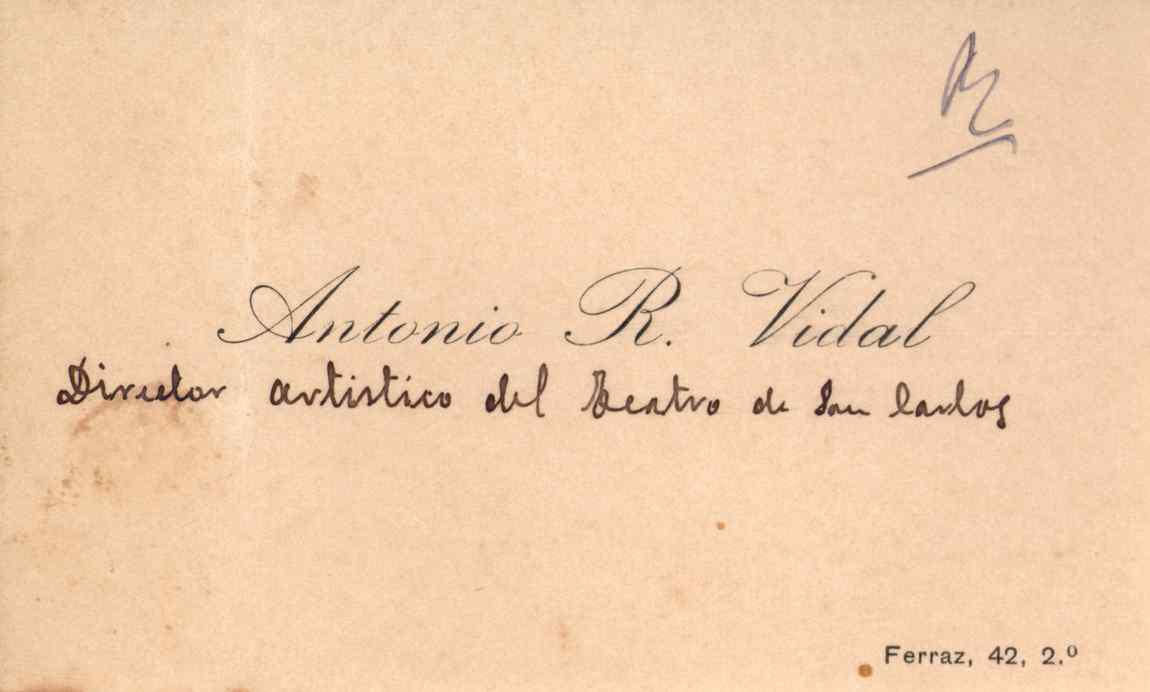 Antonio R. Vidal
Director artistico del Teatro de San Carlos
Ferraz, 42, 2.º